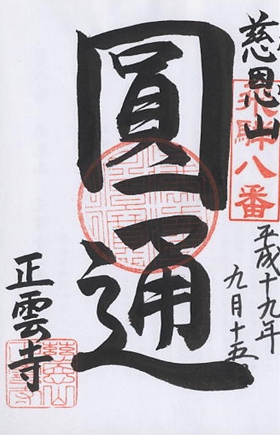 慈恩山
飛騨八番
平成十九年
九月十五日
圓通
正雲寺